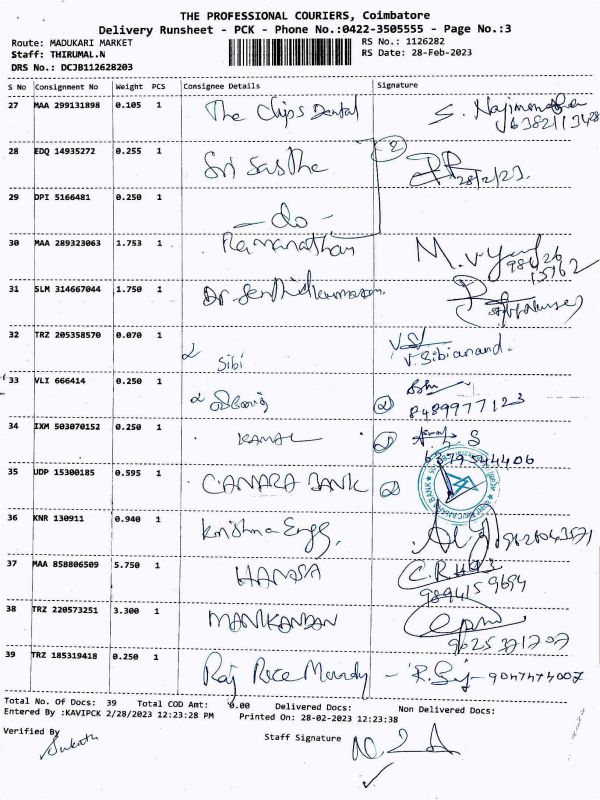 THE PROFESSIONAL COURIERS, Coimbatore
Delivery Runsheet - PCK - Phone No.:0422-3505555 - Page No.:3
Route: MADUKARI MARKET RS No.: 1126282
Staff: THIRUMAL.N RS Date: 28-Feb-2023
DRS No.: DCJB112628203
S No Consignment No Weight PCS Consignee Details Signature
27 MAA 299131898 0.105 1 The Chips Dental
28 EDQ 14935272 0.255 1 Sri Sasthe 2 28/2/23.
29 DPI 5166481 0.250 1 - do -
30 MAA 289323063 1.753 1 Ramanathan
31 SLM 314667044 1.750 1 Dr Senthilkumaran
32 TRZ 205358570 0.070 1 Sibi V. Sibianand.
33 VLI 666414 0.250 1 8489977123
34 IXM 503070152 0.250 1 KAMAL 6379544406
35 UDP 15300185 0.595 1 CANARA BANK
36 KNR 130911 0.940 1 Krishna Engg.
37 MAA 858806509 5.750 1 HAMSA 9894159694
38 TRZ 220573251 3.300 1 MANIKANDAN
39 TRZ 185319418 0.250 1 Raj Rice Mandy
Total No. Of Docs: 39 Total COD Amt: 0.00 Delivered Docs: Non Delivered Docs:
Entered By :KAVIPCK 2/28/2023 12:23:28 PM Printed On: 28-02-2023 12:23:38
Verified By Staff Signature